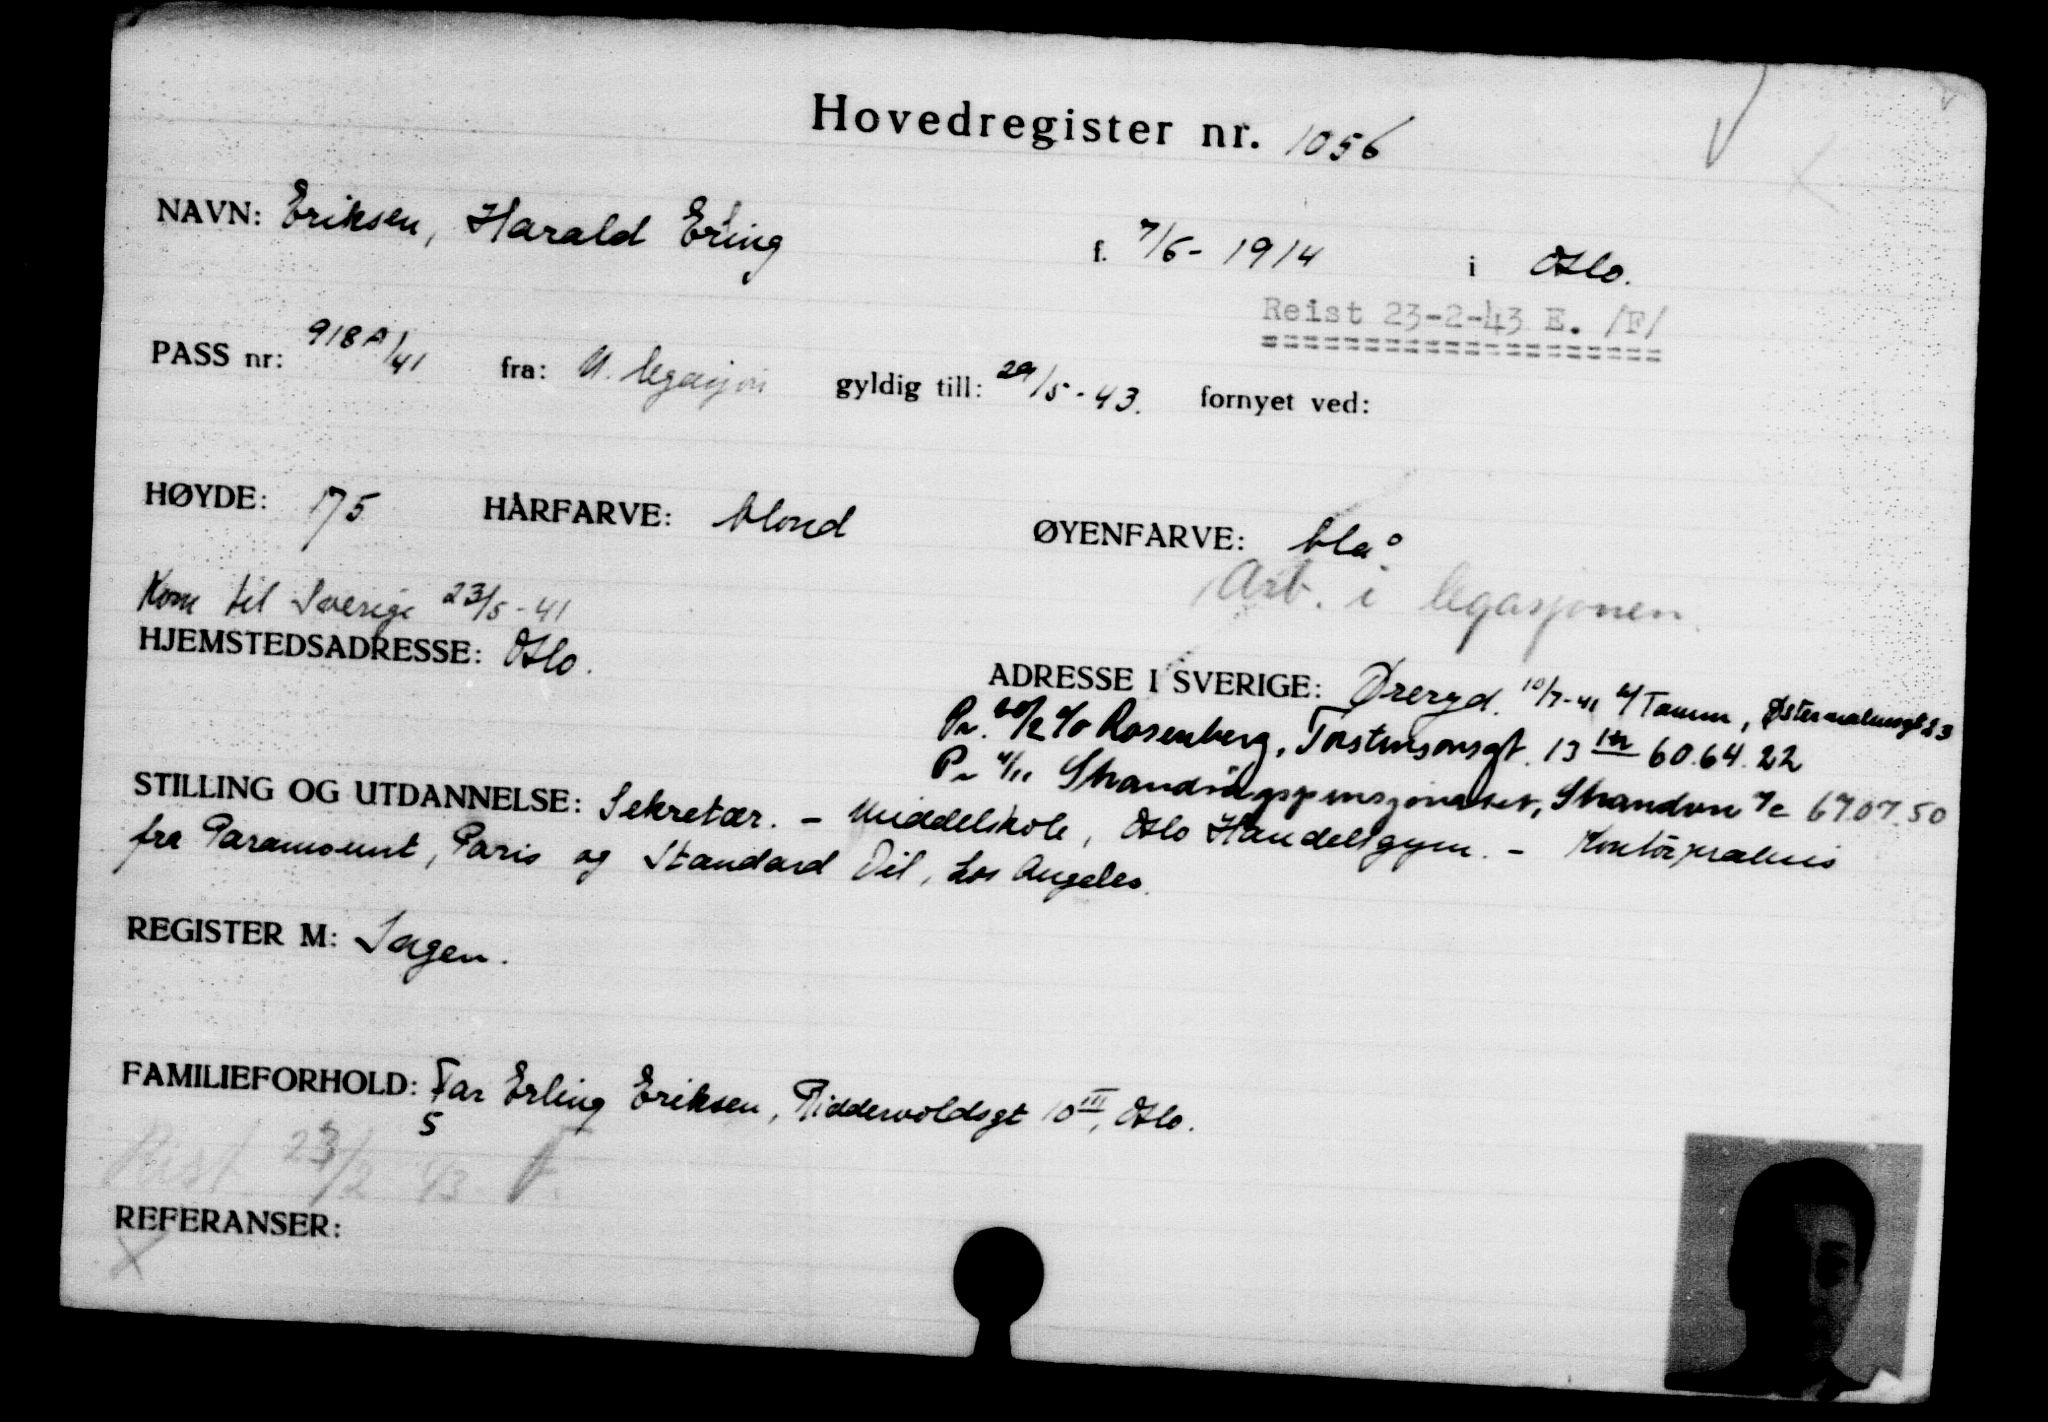 Hovedregister nr. 1056
NAVN: Eriksen, Harald Erling f. 7/6 - 1914 i Oslo.
Reist 23-2-43 E. /F/
PASS nr: 918A/41 fra: N. legasjon gyldig till: 29/5 - 43. fornyet ved:
HØYDE: 175 HÅRFARVE: blond ØYENFARVE: blå
Arb. i legasjonen.
Kom til Sverige 23/5 - 41
HJEMSTEDSADRESSE: Oslo.
ADRESSE I SVERIGE: Øreryd. 10/7-41 c/ Tamm, Østermalmsgt 83
Pr. c/o Rosenberg, Torstensonsgt. 13 60.64.22
Pr 4/11 Strandvägspensjonatet, Strandvn 7c 67.07.50
STILLING OG UTDANNELSE: Sekretær. - Middelskole, Oslo Handelsgym. - Kontorpraksis
fra Paramount, Paris og Standard Oil, Los Angeles.
REGISTER M: Ingen.
FAMILIEFORHOLD: Far Erling Eriksen, Riddervoldsgt 10 III, Oslo.
5
Reist 23/2 43 F.
REFERANSER: